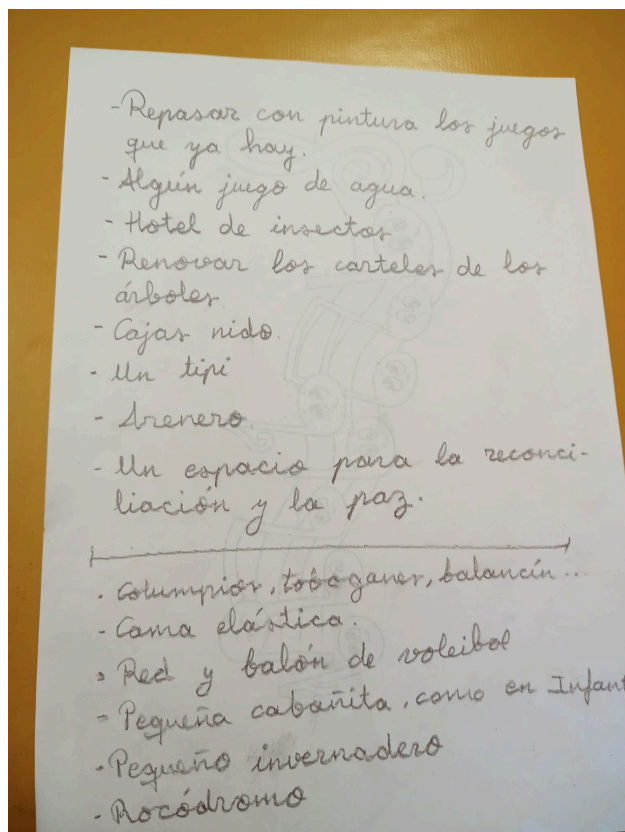 - Repasar con pintura los juegos
que ya hay.
- Algún juego de agua.
- Hotel de insectos
- Renovar los carteles de los
árboles.
- Cajas nido.
- Un tipi
- Arenero.
- Un espacio para la reconci-
liación y la paz.
. Columpios, toboganes, balancín...
- Cama elástica.
- Red y balón de voleibol
- Pequeña cabañita, como en Infant
- Pequeño invernadero
- Rocódromo